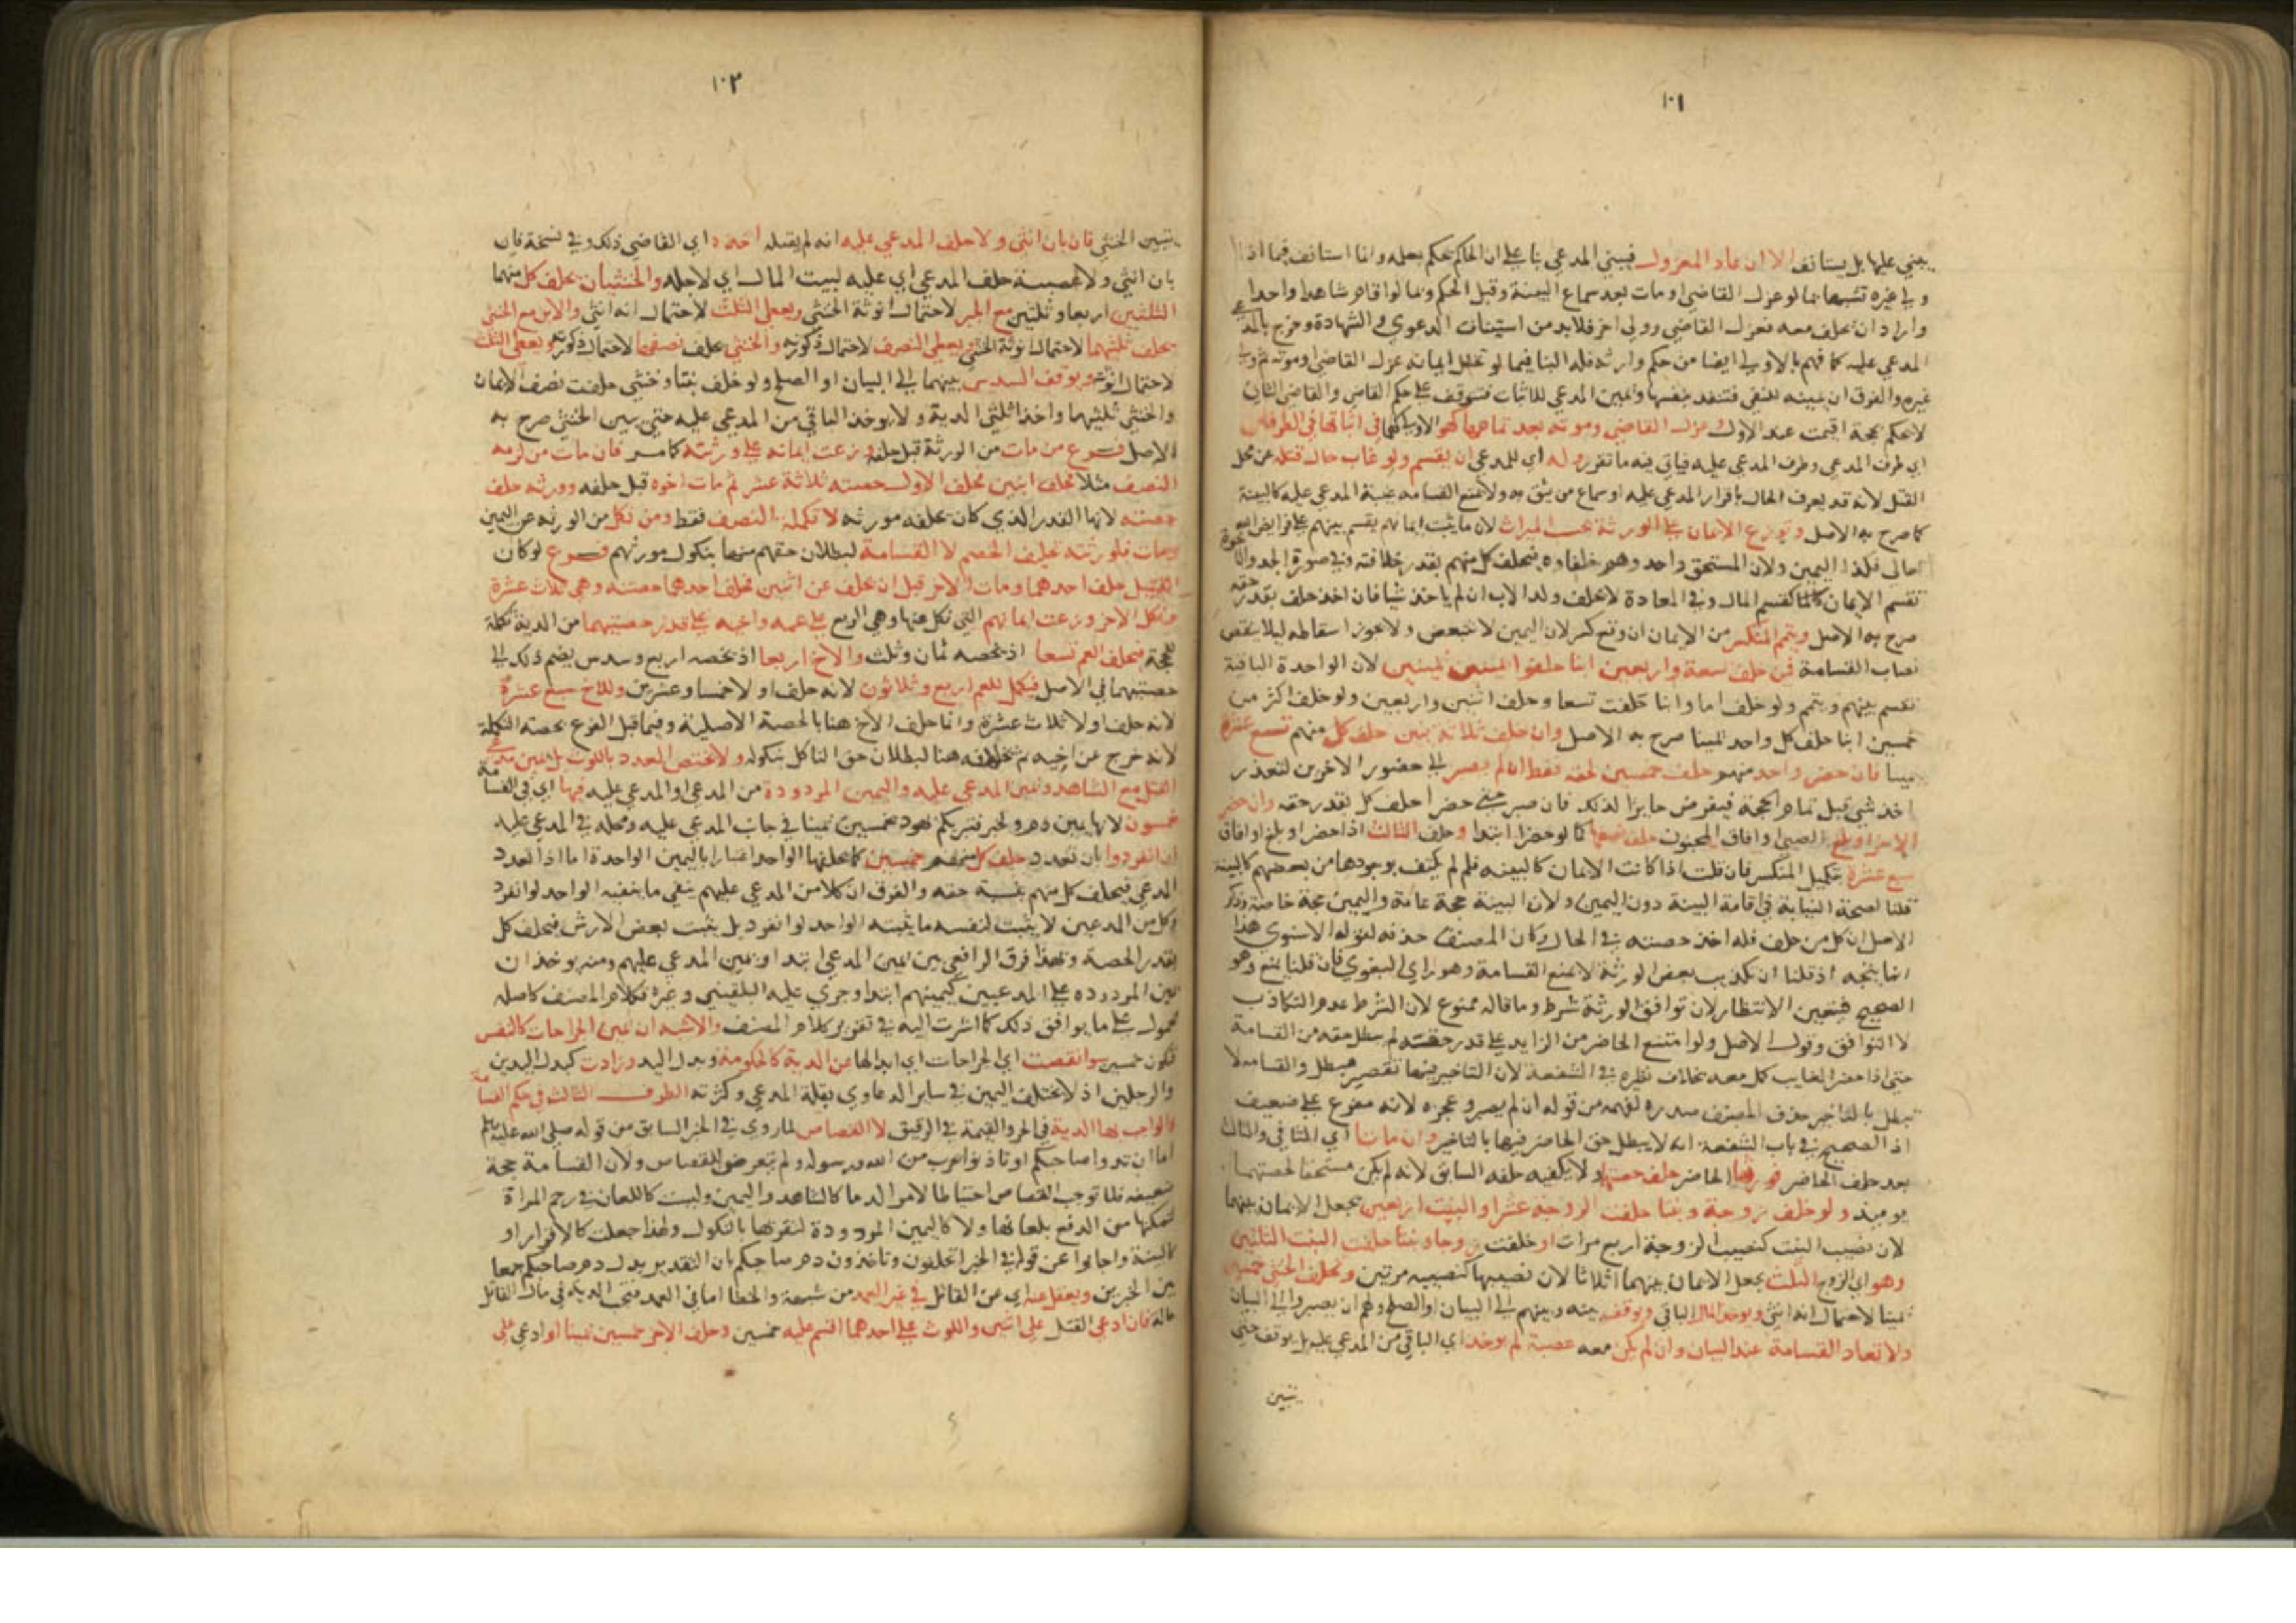 ١٠١
يبني عليها بل يستانف الا ان عاد المعزول فيبني المدعي بنا على ان الحاكم يحكم بعلمه وانما استانف فيما اذا
ولي غيره تشبيها بما لو عزل القاضي او مات بعد سماع البينة وقبل الحكم وبما لو اقام شاهدا واحدا
واراد ان يحلف معه فعزل القاضي وولي اخر فلا بد من استيناف الدعوي والشهادة وخرج بالمدعي
المدعي عليه كما فهم بالاولي ايضا من حكم وارثه فله البنا فيما لو تخلل ايمانه عزل القاضي او موته ثم ولي
غيره والفرق ان يمينه للنفي فتنفذ بنفسها ويمين المدعي للاثبات فتتوقف على حكم القاضي والقاضي الثاني
لا يحكم بحجة اقيمت عند الاول وعزل القاضي وموته بعد تمامها كهو الاولي كهما في اثنائها في الطرفين
اي طرف المدعي وطرف المدعي عليه فياتي فيه ما تقرر وله اي للمدعي ان يقسم ولو غاب حال قتله عن محل
القتل لانه قد يعرف الحال باقرار المدعي عليه او سماع من يثق به ولا تمنع القسامة غيبة المدعي عليه كالبينة
كما صرح به الاصل وتوزع الايمان على الورثة بحسب الميراث لان ما يثبت بايمانهم يقسم بينهم على فرايض الله
تعالي فكذا اليمين ولان المستحق واحد وهم خلفاوه فيحلف كل منهم بقدر خلافته وفي صورة الجد والاخوة
تقسم الايمان كما كقسم المال وفي المعادة لا يحلف ولد الاب ان لم ياخذ شيا فان اخذ حلف بقدر حقه
صرح به الاصل ويتمم المنكسر من الايمان ان وقع كسر لان اليمين لا تتبعض ولا يجوز اسقاطه ليلا ينقص
نصاب القسامة فمن خلف تسعة واربعين ابنا حلفوا يمينين يمينين لان الواحدة الباقية
تقسم بينهم ويتمم ولو خلف اما وابنا حلفت تسعا وحلف اثنين واربعين ولو خلف اكثر من
خمسين ابنا حلف كل واحد يمينا صرح به الاصل وان خلف ثلاثة بنين حلف كل منهم سبع عشرة
يمينا فان حضر واحد منهم حلف خمسين لحقه فقط ان لم يصبر الي حضور الاخرين لتعذر
اخذ شي قبل تمام الحجة فيفرض حايزا لذلك فان صبر حتي حضرا حلف كل بقدر حقه وان حضر
الاخر او بلغ الصبي او افاق المجنون حلف نصفها كما لو حضرا ابتدا وحلف الثالث اذا حضر او بلغ او افاق
سبع عشرة بتكميل المنكسر فان قلت اذا كانت الايمان كالبينة فلم لم يكتف بوجودها من بعضهم كالبينة
قلنا لصحة النيابة في اقامة البينة دون اليمين ولان البينة حجة عامة واليمين حجة خاصة وذكر
الاصل ان كل من حلف فله اخذ حصته في الحال وكان المصنف حذفه لقول الاسنوي هذا
انما يتجه اذ قلنا ان تكذيب بعض الورثة لا يمنع القسامة وهو راي البغوي فان قلنا يمنع وهو
الصحيح فيتعين الانتظار لان توافق الورثة شرط وما قاله ممنوع لان الشرط عدم التكاذب
لا التوافق وقول الاصل ولو امتنع الحاضر من الزايد على قدر حصته لم يبطل حقه من القسامة
حتي اذا حضر الغايب كمل معه بخلاف نظيره في الشفعة لان التاخير فيها تقصير مبطل والقسامة لا
تبطل بالتاخير حذف المصنف صدره لفهمه من قوله ان لم يصبر وعجزه لانه مفرع على ضعيف
اذ الصحيح في باب الشفعة انه لا يبطل حق الحاضر فيها بالتاخير وان ماتا اي الثاني والثالث
بعد حلف الحاضر فورثهما الحاضر حلف حصتهما ولا يكفيه حلفه السابق لانه لم يكن مستحقا لحصتهما
يوميذ ولو خلف زوجة وبنتا حلفت الزوجة عشرا والبنت اربعين بجعل الايمان بينهما
لان نصيب البنت كنصيب الزوجة اربع مرات او خلفت زوجا وبنتا حلفت البنت الثلثين
وهو اي الزوج الثلث بجعل الايمان بينهما اثلاثا لان نصيبها كنصيبه مرتين ويحلف الخنثي خمسين
يمينا لاحتمال انه انثي ويوخذ المال الباقي ويوقف بينه وبينهم الي البيان او الصلح ولهم ان يصبروا الي البيان
ولا تعاد القسامة عند البيان وان لم يكن معه عصبة لم يوخذ اي الباقي من المدعي عليه بل يوقف حتي
يتبين
١٠٢
يتبين الخنثي فان بان انثي ولا حلف المدعي عليه انه لم يقتله اخذه اي القاضي ذلك وفي نسخة فان
بان انثي ولا عصبة حلف المدعي اي عليه لبيت المال اي لاجله والخنثيان يحلف كل منهما
الثلثين اربعا وثلثين مع الجبر لاحتمال انوثة الخنثي ويعطي الثلث لاحتمال انه انثي والابن مع الخنثي
يحلف ثلثيهما لاحتمال انوثة الخنثي ويعطي النصف لاحتمال ذكورته والخنثي يحلف نصفها لاحتمال ذكورته ويعطي الثلث
لاحتمال انوثته ويوقف السدس بينهما الي البيان او الصلح ولو خلف بنتا وخنثي حلفت نصف الايمان
والخنثي ثلثيهما واخذا ثلثي الدية ولا يوخذ الباقي من المدعي عليه حتي يبين الخنثي صرح به
الاصل فرع من مات من الورثة قبل حلفه وزعت ايمانه على ورثته كما مر فان مات من لزمه
النصف مثلا تخلف ابنين فحلف الاول حصته ثلاثة عشر ثم مات اخوه قبل حلفه وورثه حلف
حصته لانها القدر الذي كان يحلفه مورثه لا تكملة النصف فقط ومن نكل من الورثة عن اليمين
ومات فلورثته تحليف الخصم لا القسامة لبطلان حقهم منها بنكول مورثهم فرع لو كان
للقتيل حلف احدهما ومات الاخر قبل ان يحلف عن اثنين فحلف احدهما حصته وهي ثلاث عشرة
ونكل الاخر وزعت ايمانهم التي نكل عنها وهي الربع على عمه واخيه على قدر حصتيهما من الدية تكملة
للحجة فيحلف العم تسعا اذ يخصه ثمان وثلث والاخ اربعا اذ يخصه اربع وسدس يضم ذلك الي
حصتيهما في الاصل فيكمل للعم اربع وثلاثون لانه حلف اولا خمسا وعشرين وللاخ سبع عشرة
لانه حلف اولا ثلاث عشرة وانما حلف الاخ هنا بالحصة الاصلية وفيما قبل الفرع بحصته التكملة
لانه خرج عن اخيه ثم بخلافه هنا لبطلان حق الناكل بنكوله ولا يختص العدد باللوث بل يمين مدعي
القتل مع الشاهد ويمين المدعي عليه واليمين المردودة من المدعي او المدعي عليه فيها اي في القسامة
خمسون لانها يمين دم ولخبر فتبريكم يهود بخمسين يمينا في جانب المدعي عليه ومحله في المدعي عليه
ان انفردوا بان تعدد حلف كل منهم خمسين كما يحلفها الواحد اعتبارا باليمين الواحدة اما اذا تعدد
المدعي فيحلف كل منهم نسبة حقه والفرق ان كلا من المدعي عليهم ينفي ما ينفيه الواحد لو انفرد
وكل من المدعين لا يثبت لنفسه ما يثبته الواحد لو انفرد بل يثبت بعض الارش فيحلف كل
بقدر الحصة وبهذا فرق الرافعي بين يمين المدعي ابتدا ويمين المدعي عليهم ومنه يوخذ ان
يمين المردودة على المدعيين كيمينهم ابتدا وجري عليه البلقيني وغيره فكلام المصنف كاصله
محمول على ما يوافق ذلك كما اشرت اليه في تقرير كلام المصنف والاشبه ان يمين الجراحات كالنفس
فتكون خمسين سوا نقصت اي الجراحات اي ابدالها عن الدية كالحكومة وبدل اليد وزادت كبدل اليدين
والرجلين اذ لا يختلف اليمين في ساير الدعاوي بقلة المدعي وكثرته الطرف الثالث في حكم القسامة
والواجب بها الدية في الحر والقيمة في الرقيق لا القصاص لما روي في الخبر السابق من قوله صلى الله عليه وسلم
اما ان تدوا صاحبكم او تاذنوا بحرب من الله ورسوله ولم يتعرض للقصاص ولان القسامة حجة
ضعيفة فلا توجب القصاص احتياطا لامر الدما كالشاهد واليمين وليست كاللعان في رجم المراة
لتمكنها من الدفع بلعانها ولا كاليمين المردودة لتقرتها بالنكول ولهذا جعلت كالاقرار او
كالبينة واجابوا عن قوله في الخبر اتحلفون وتاخذون دم صاحبكم بان التقدير بدل دم صاحبكم جمعا
بين الخبرين ويعقل عنه اي عن القاتل في غير العمد من شبهه والخطا اما في العمد فتجب الدية في مال القاتل
حالة فان ادعي القتل على اثنين واللوث على احدهما اقسم عليه خمسين وحلف الاخر خمسين يمينا او ادعي على